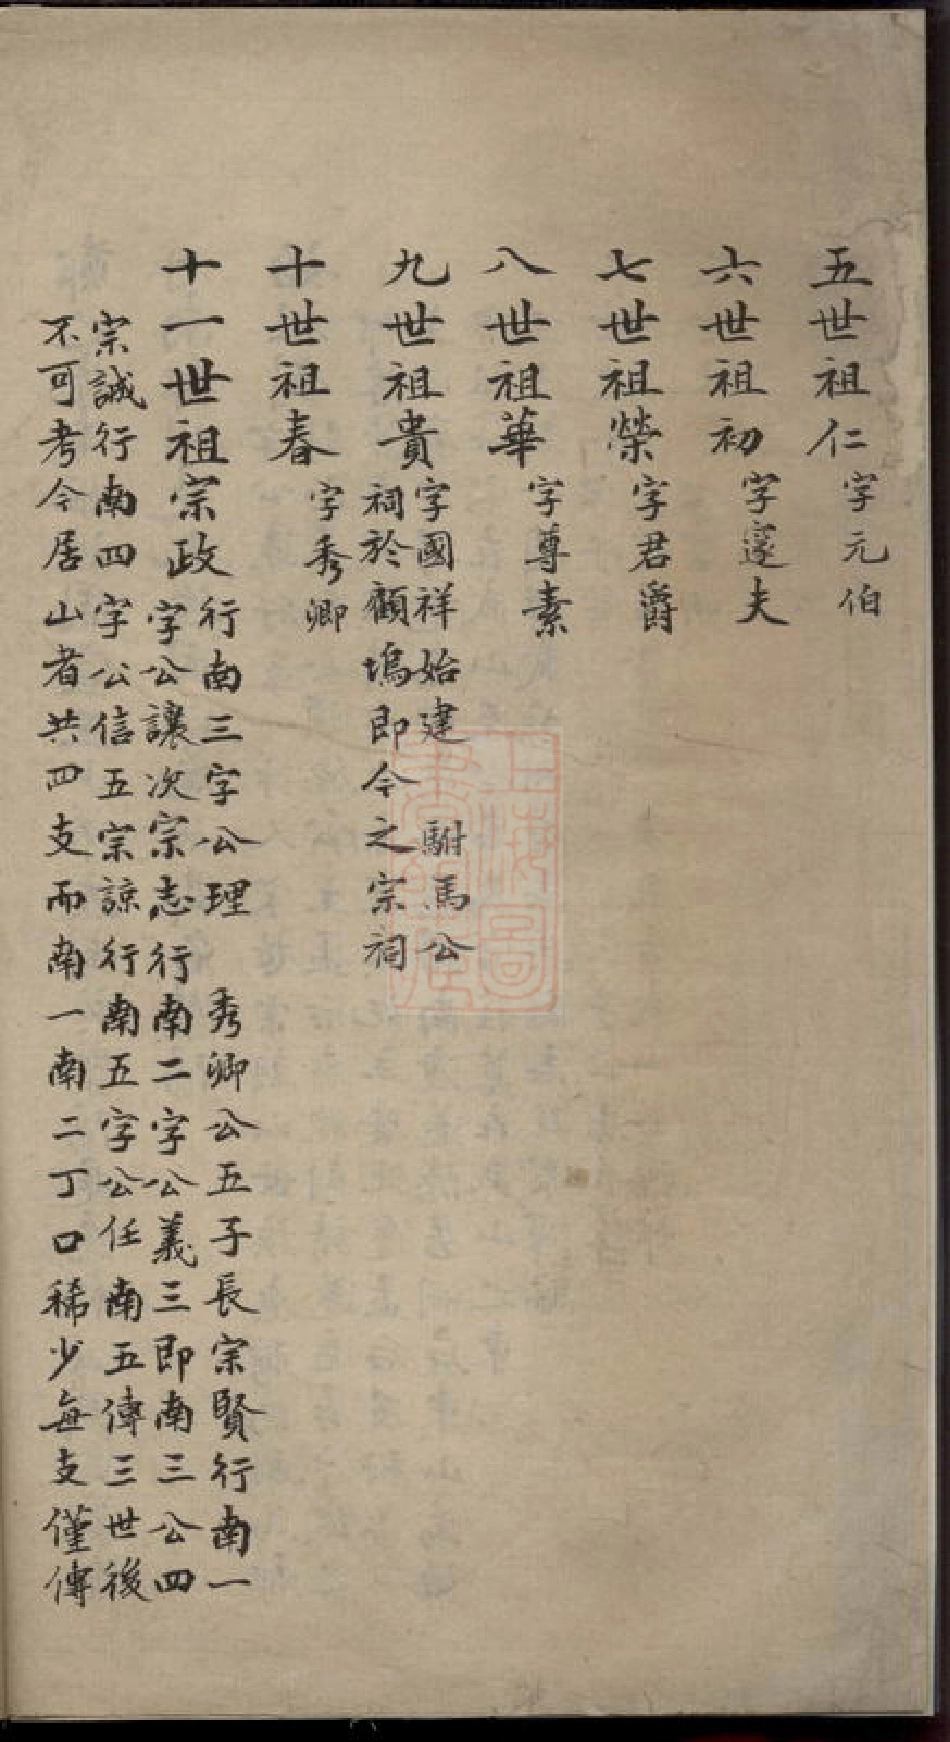 五世祖仁 字元伯
六世祖初 字邃夫
七世祖榮 字君爵
八世祖華 字尊素
九世祖貴 字國祥始建 駙馬公
祠於顧塢即今之宗祠
十世祖春 字秀卿
十一世祖宗政 行南三字公理 秀卿公五子長宗賢行南一
字公讓次宗志行南二字公義三即南三公四
宗誠行南四字公信五宗諒行南五字公任南五傳三世後
不可考今居山者共四支而南一南二丁口稀少每支僅傳
上海圖書館藏